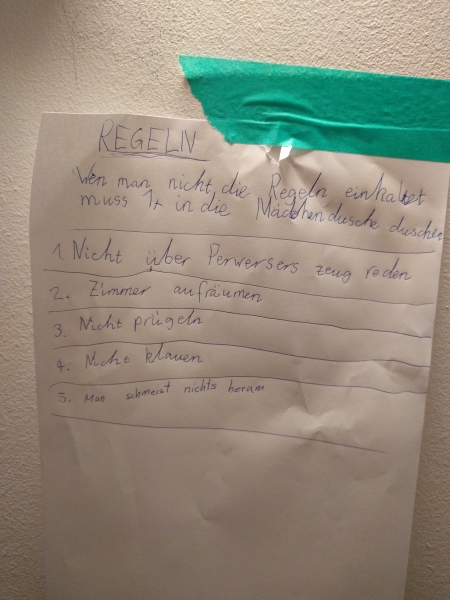 REGELN
Wen man nicht die Regeln einhaltet
muss 1x in die Mädchendusche duschen
1. Nicht über Perwersers zeug reden
2. Zimmer aufräumen
3. Nicht prügeln
4. Nicht klauen
5. Man schmeist nichts herum